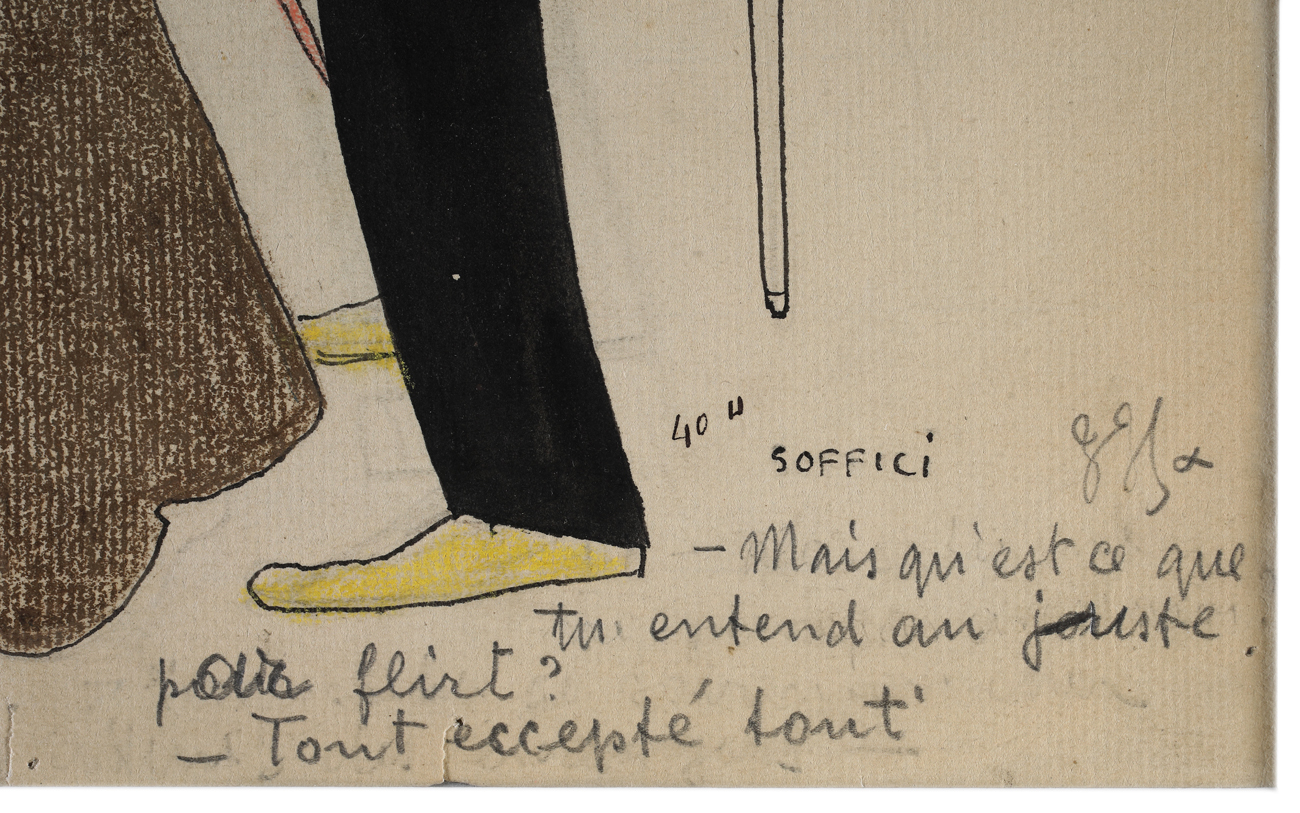 40"
SOFFICI
– Mais qu'est ce que
tu entend au juste
flirt ?
– Tout eccepté tout